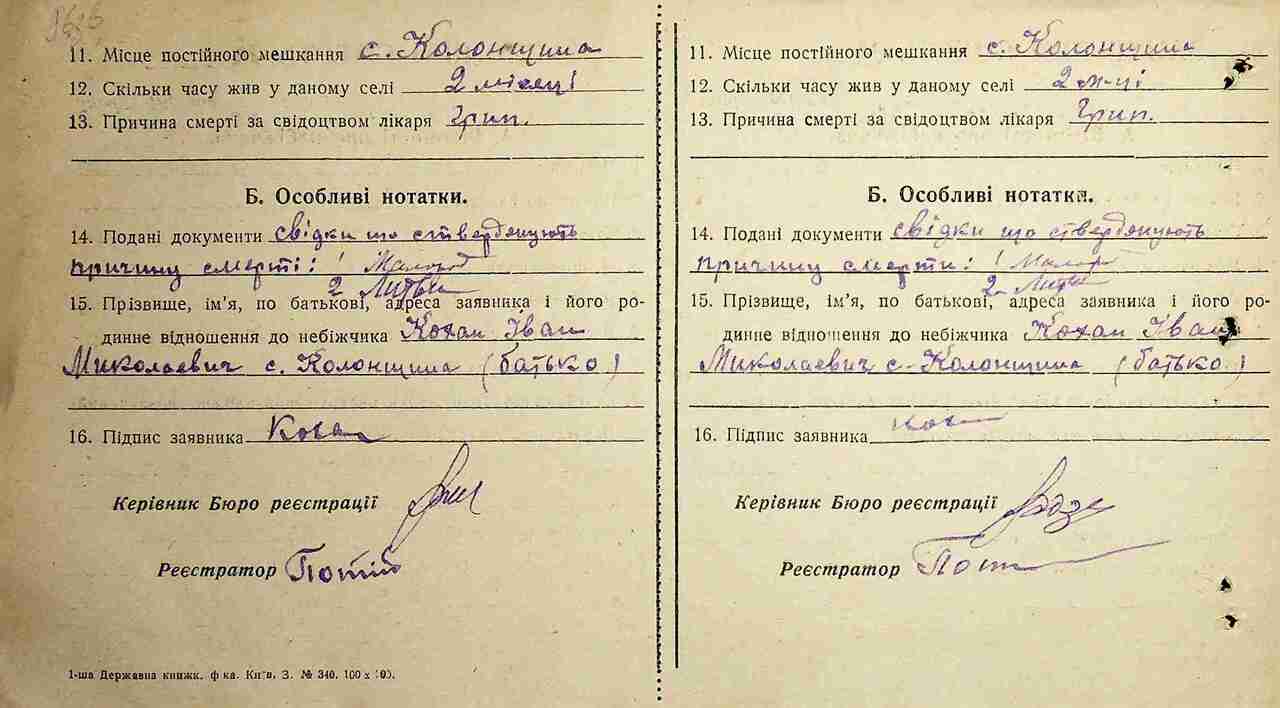 11. Місце постійного мешкання с. Колонщина
12. Скільки часу жив у даному селі 2 місяці
13. Причина смерті за свідоцтвом лікаря Грип.
Б. Особливі нотатки.
14. Подані документи свідки що стверджують
причину смерті: 1
2
15. Прізвище, ім’я, по батькові, адреса заявника і його ро-
динне відношення до небіжчика Кохан Іван
Миколаевич с. Колонщина (батько)
16. Підпис заявника Коха
Керівник Бюро реєстрації
Реєстратор
1-ша Державна книжк. ф-ка. Київ, З. № 340. 100 х 100.
11. Місце постійного мешкання с. Колонщина
12. Скільки часу жив у даному селі 2 м-ці
13. Причина смерті за свідоцтвом лікаря Грип.
Б. Особливі нотатки.
14. Подані документи свідки що стверджують
причину смерти: 1
2
15. Прізвище, ім’я, по батькові, адреса заявника і його ро-
динне відношення до небіжчика Кохан Іван
Миколаевич с. Колонщина (батько)
16. Підпис заявника
Керівник Бюро реєстрації
Реєстратор